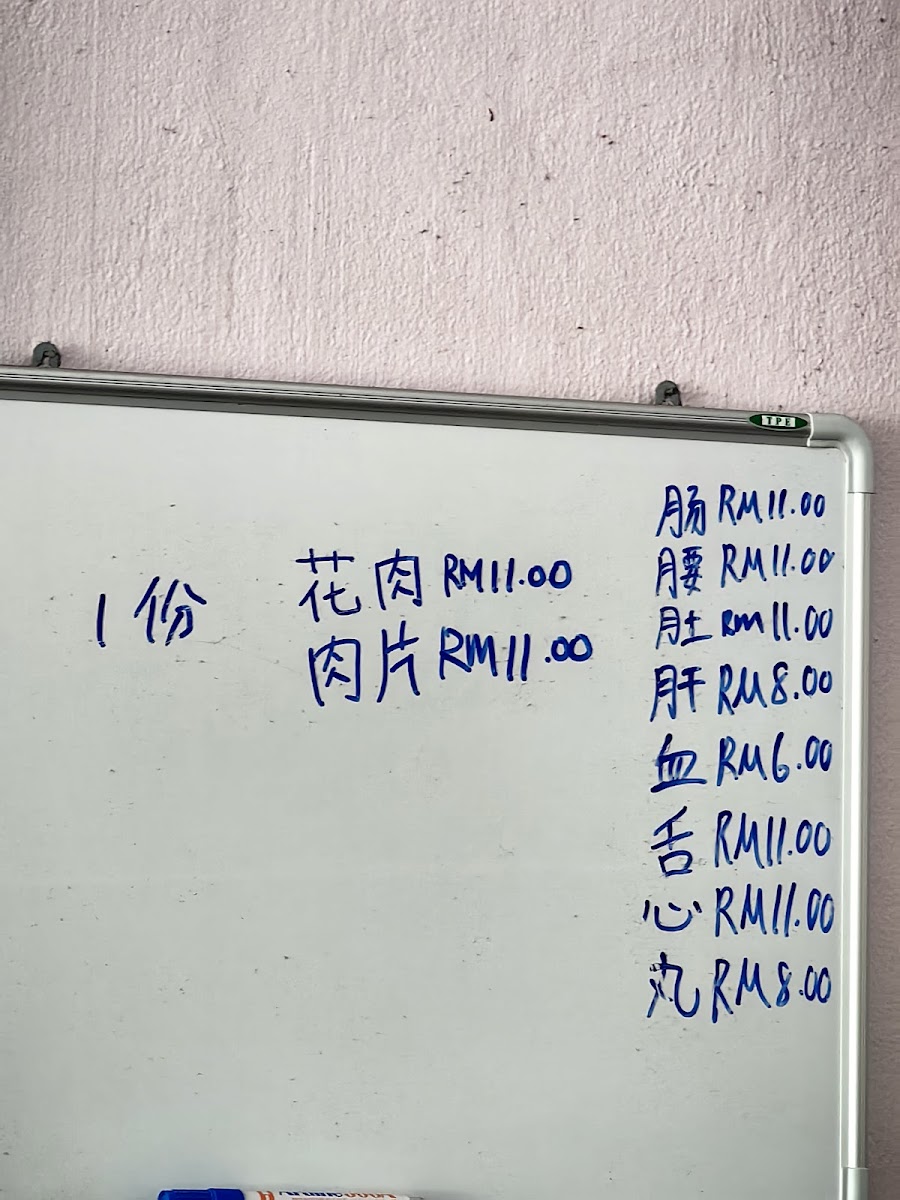 TPE
1份
花肉 RM11.00
肉片 RM11.00
肠 RM11.00
腰 RM11.00
肚 Rm11.00
肝 RM8.00
血 RM6.00
舌 RM11.00
心 RM11.00
丸 RM8.00